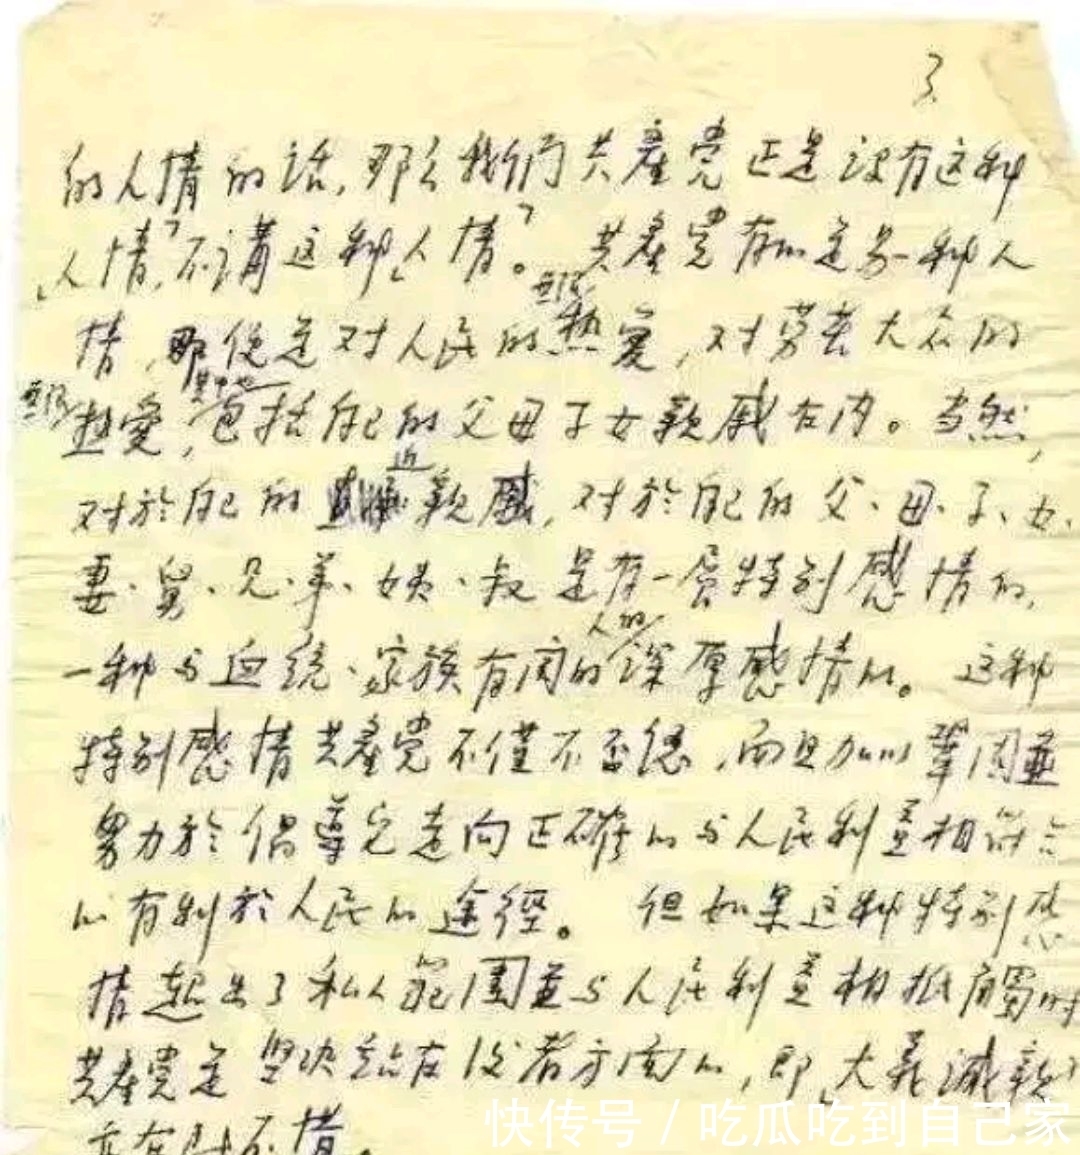 3
的人情的话,那么我们共產党正是没有这种
“人情”,不講这种“人情”。共產党有的是另一种人
無限
情,那便是对人民的热爱,对劳苦大众的
無限 其中也
热愛,包括自己的父母子女親戚在内。当然,
近
对於自己的親戚,对於自己的父、母、子、女、
妻、舅、兄、弟、姨、叔是有一层特别感情的,
人的
一种与血统、家族有関的深厚感情的。这种
特别感情共產党不僅不否認,而且加以鞏固並
努力於倡導它走向正確的与人民利益相符合
的有利於人民的途徑。但如果这种特别感
情超出了私人範圍並与人民利益相抵觸时
共產党是坚决站在後者方面的,即“大義滅親”
亦在所不惜。
快传号 / 吃瓜吃到自己家